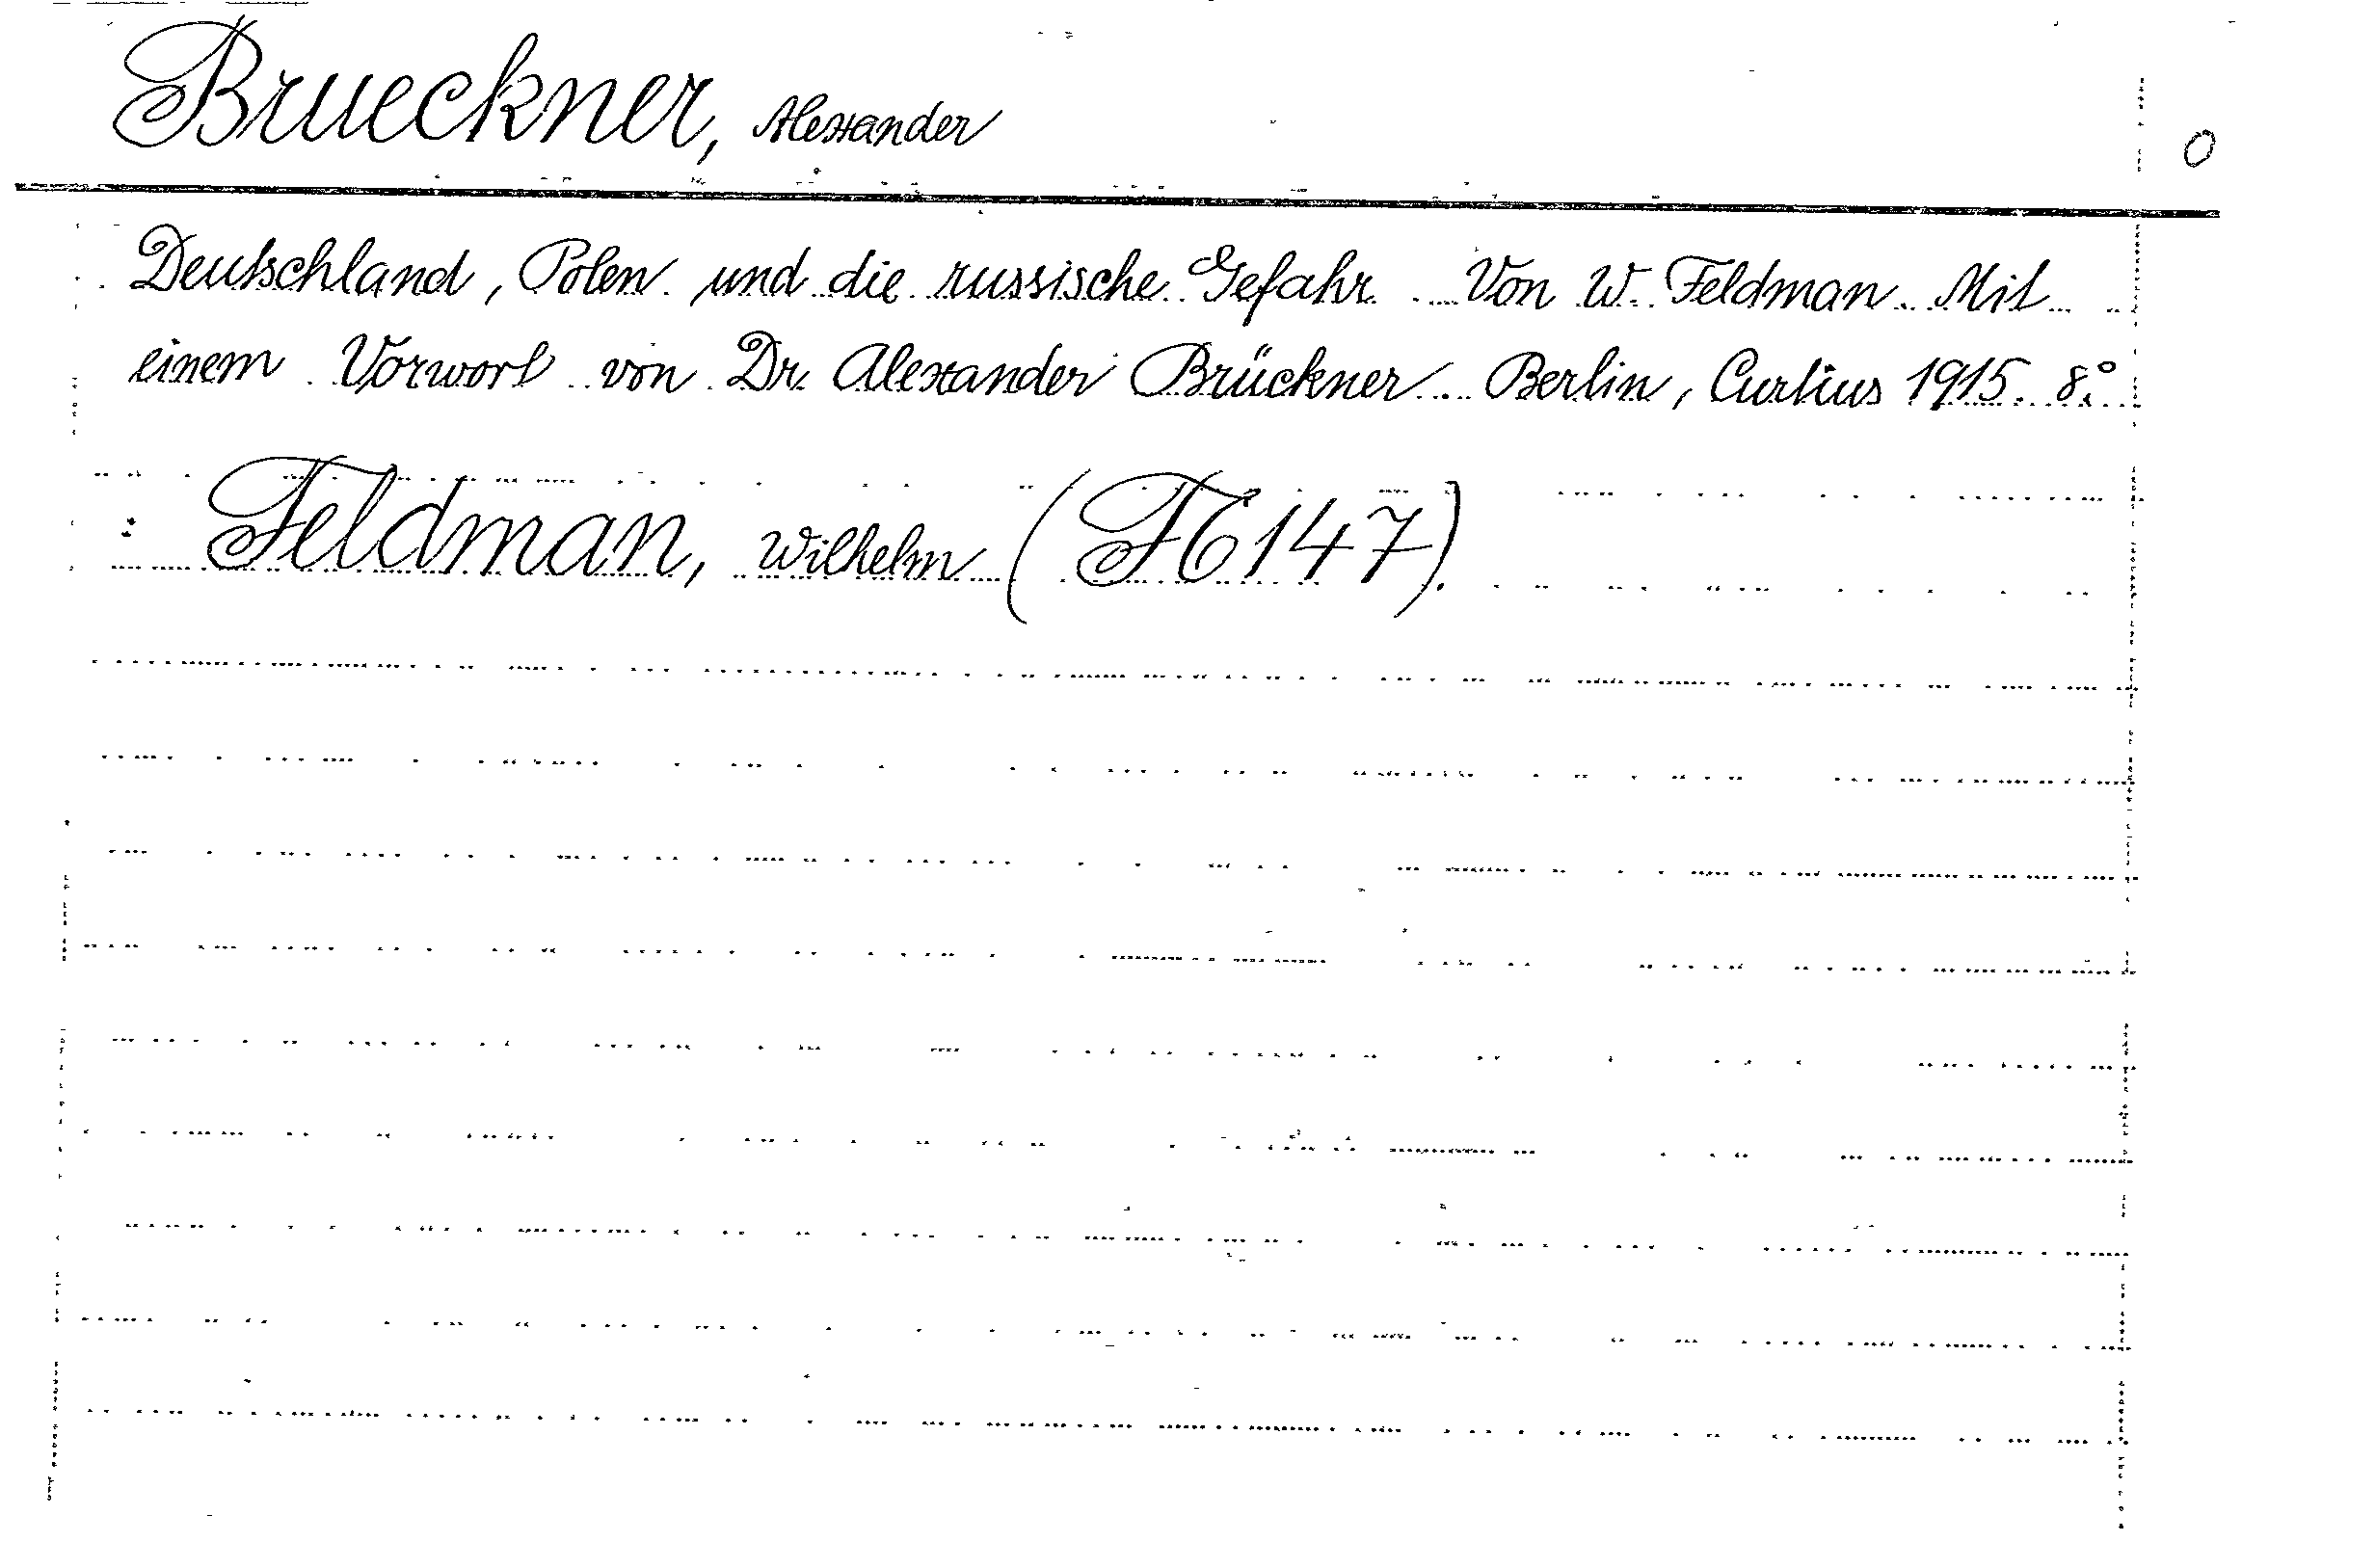 Brueckner, Alexander
O
Deutschland, Polen und die russische Gefahr. Von W. Feldman. Mit
einem Vorwort von Dr. Alexander Brückner. Berlin, Curtius 1915. 8.°
: Feldman, Wilhelm (F6147).